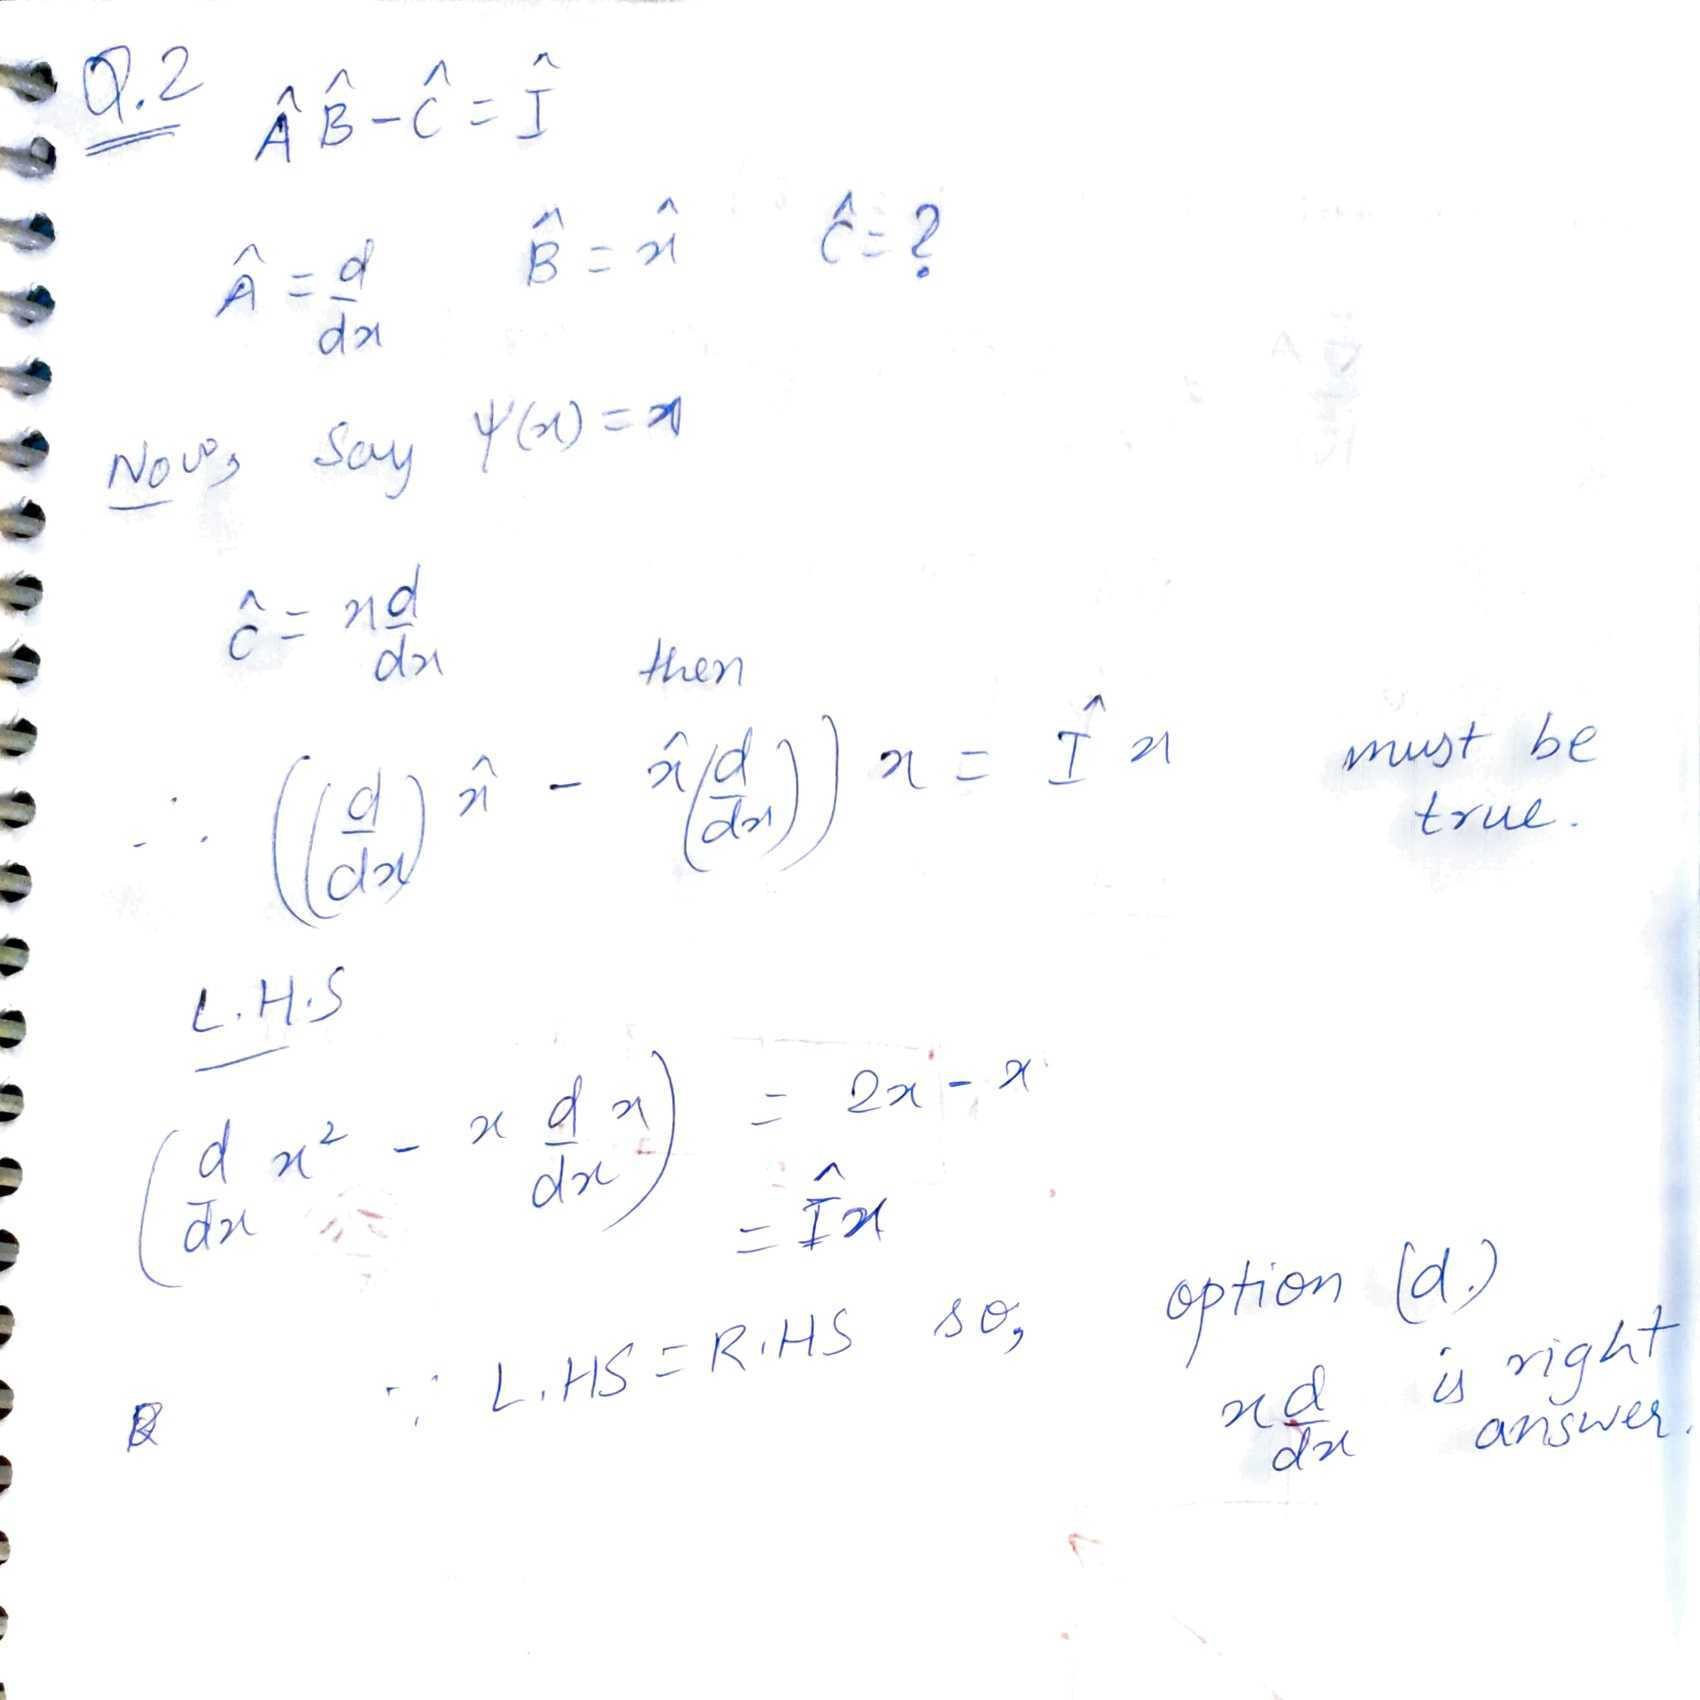 Q.2 ÂB̂ - Ĉ = Î
Â = d/dx B̂ = x̂ Ĉ = ?
Now, Say ψ(x) = x
Ĉ = x d/dx
then
∴ ((d/dx) x̂ - x̂(d/dx)) x = Î x must be true.
L.H.S
(d/dx x² - x d/dx x) = 2x - x
= Îx
∵ L.HS = R.HS so, option (d.)
x d/dx is right answer.